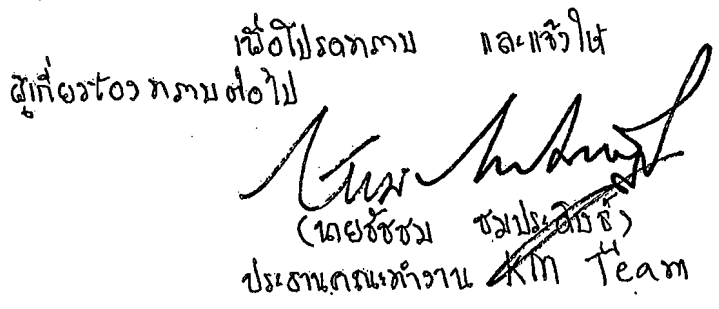 เพื่อโปรดทราบ และแจ้งให้
ผู้เกี่ยวข้องทราบต่อไป
(นายชัชชม ชมประดิษฐ์)
ประธานคณะทำงาน KM Team